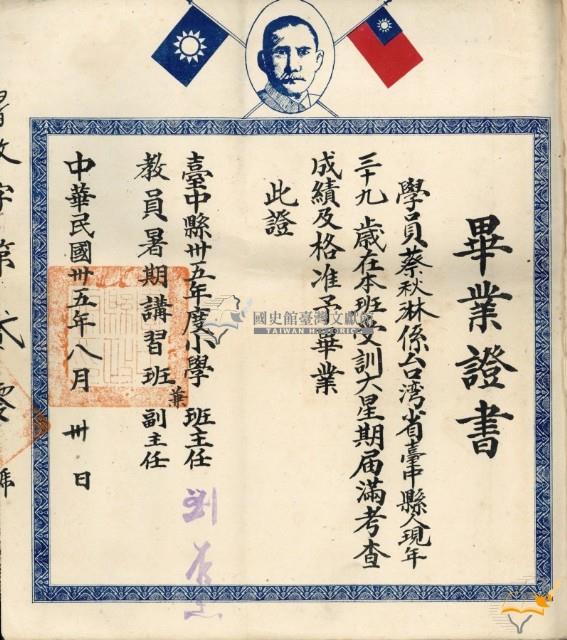 畢業證書
學員蔡秋淋係台湾省臺中縣人現年
三十九歲在本班受訓六星期届滿考查
成績及格准予畢業
此證
臺中縣卅五年度小學班主任
教員暑期講習班兼副主任
劉
中華民國卅五年八月卅日
暑教字第貳零號
國史館臺灣文獻館
TAIWAN HISTORICA